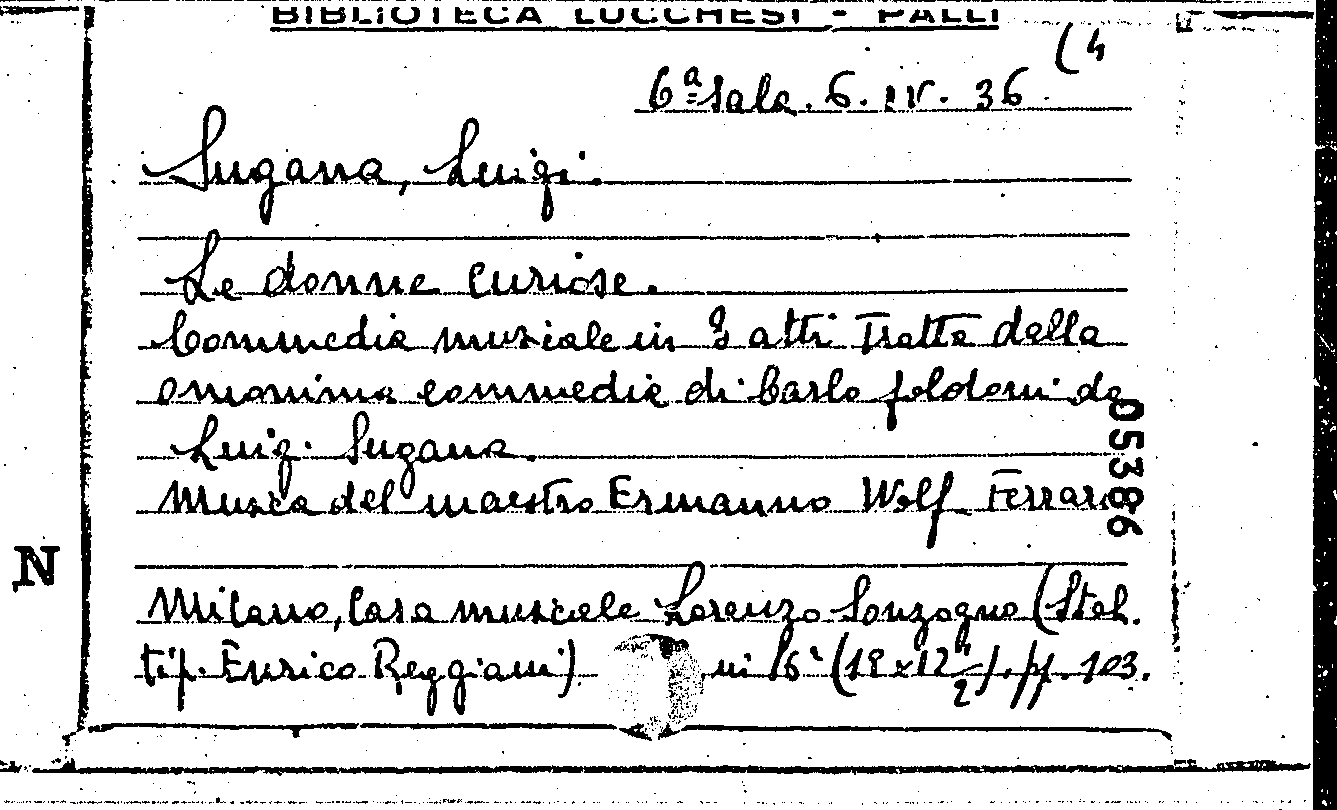 BIBLIOTECA LUCCHESI - PALLI
(4
6ª Sala. 6. IV. 36
Sugana, Luigi.
Le donne curiose.
Commedia musicale in 3 atti tratta dalla
omonima commedia di Carlo Goldoni da
Luigi Sugana.
Musica del maestro Ermanno Wolf Ferrari
053386
N
Milano, Casa musicale Lorenzo Sonzogno (Stab.
tip. Enrico Reggiani) in 16° (18x12 ½), pp. 103.